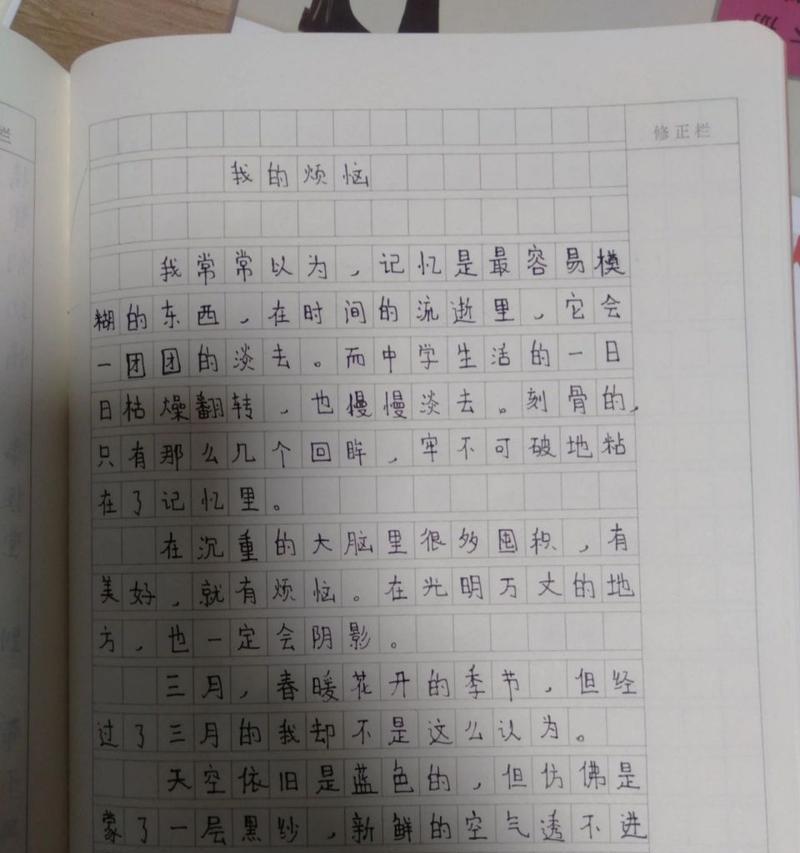 修正栏
我的烦恼
我常常以为，记忆是最容易模
糊的东西，在时间的流逝里，它会
一团团的淡去。而中学生活的一日
日枯燥翻转，也慢慢淡去。刻骨的，
只有那么几个回眸，牢不可破地粘
在了记忆里。
在沉重的大脑里很多囤积，有
美好，就有烦恼。在光明万丈的地
方，也一定会阴影。
三月，春暖花开的季节，但经
过了三月的我却不是这么认为。
天空依旧是蓝色的，但仿佛是
蒙了一层黑纱，新鲜的空气透不进